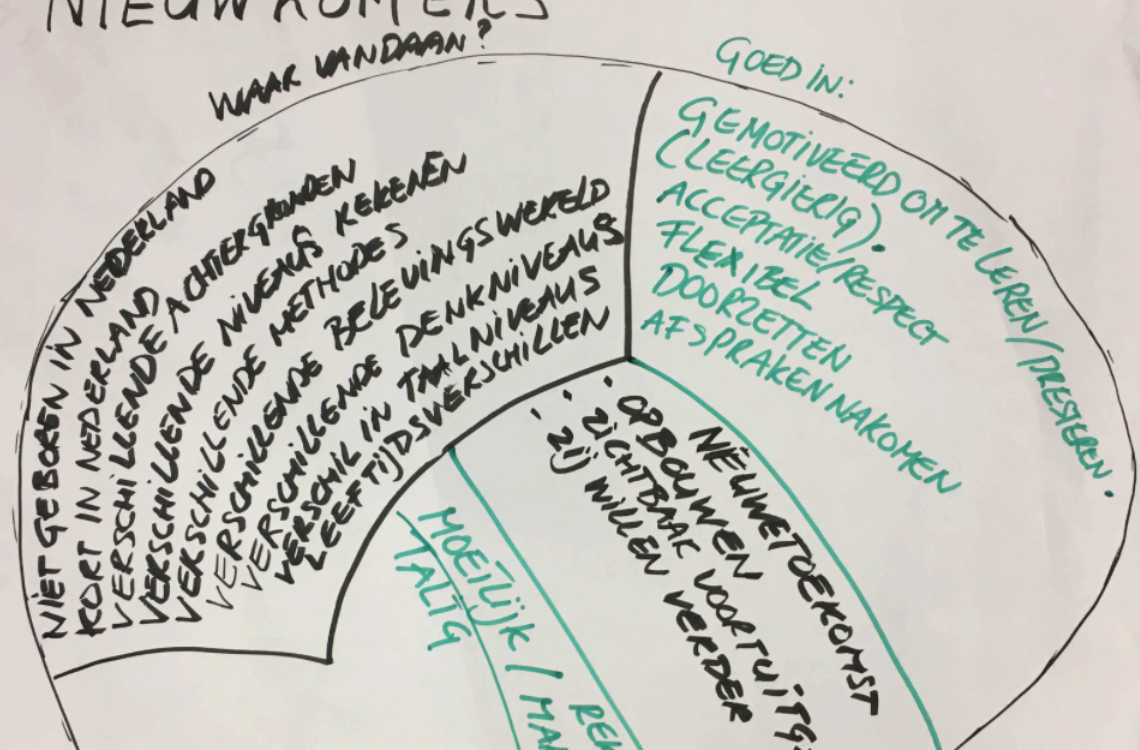 NIEUWKOMERS
WAAR VANDAAN?
NIET GEBOREN IN NEDERLAND
KORT IN NEDERLAND
VERSCHILLENDE ACHTERGRONDEN
VERSCHILLENDE NIVEAUS REKENEN
VERSCHILLENDE METHODES
VERSCHILLENDE BELEVINGSWERELD
VERSCHILLENDE DENKNIVEAUS
VERSCHIL IN TAALNIVEAUS
LEEFTIJDSVERSCHILLEN
GOED IN:
GEMOTIVEERD OM TE LEREN/PRESTEREN.
(LEERGIERIG).
ACCEPTATIE/RESPECT
FLEXIBEL
DOORZETTEN
AFSPRAKEN NAKOMEN
NIEUWE TOEKOMST
· OPBOUWEN
· ZICHTBAAR VOORTUITG
- ZIJ WILLEN VERDER
MOEILIJK /
TALIG